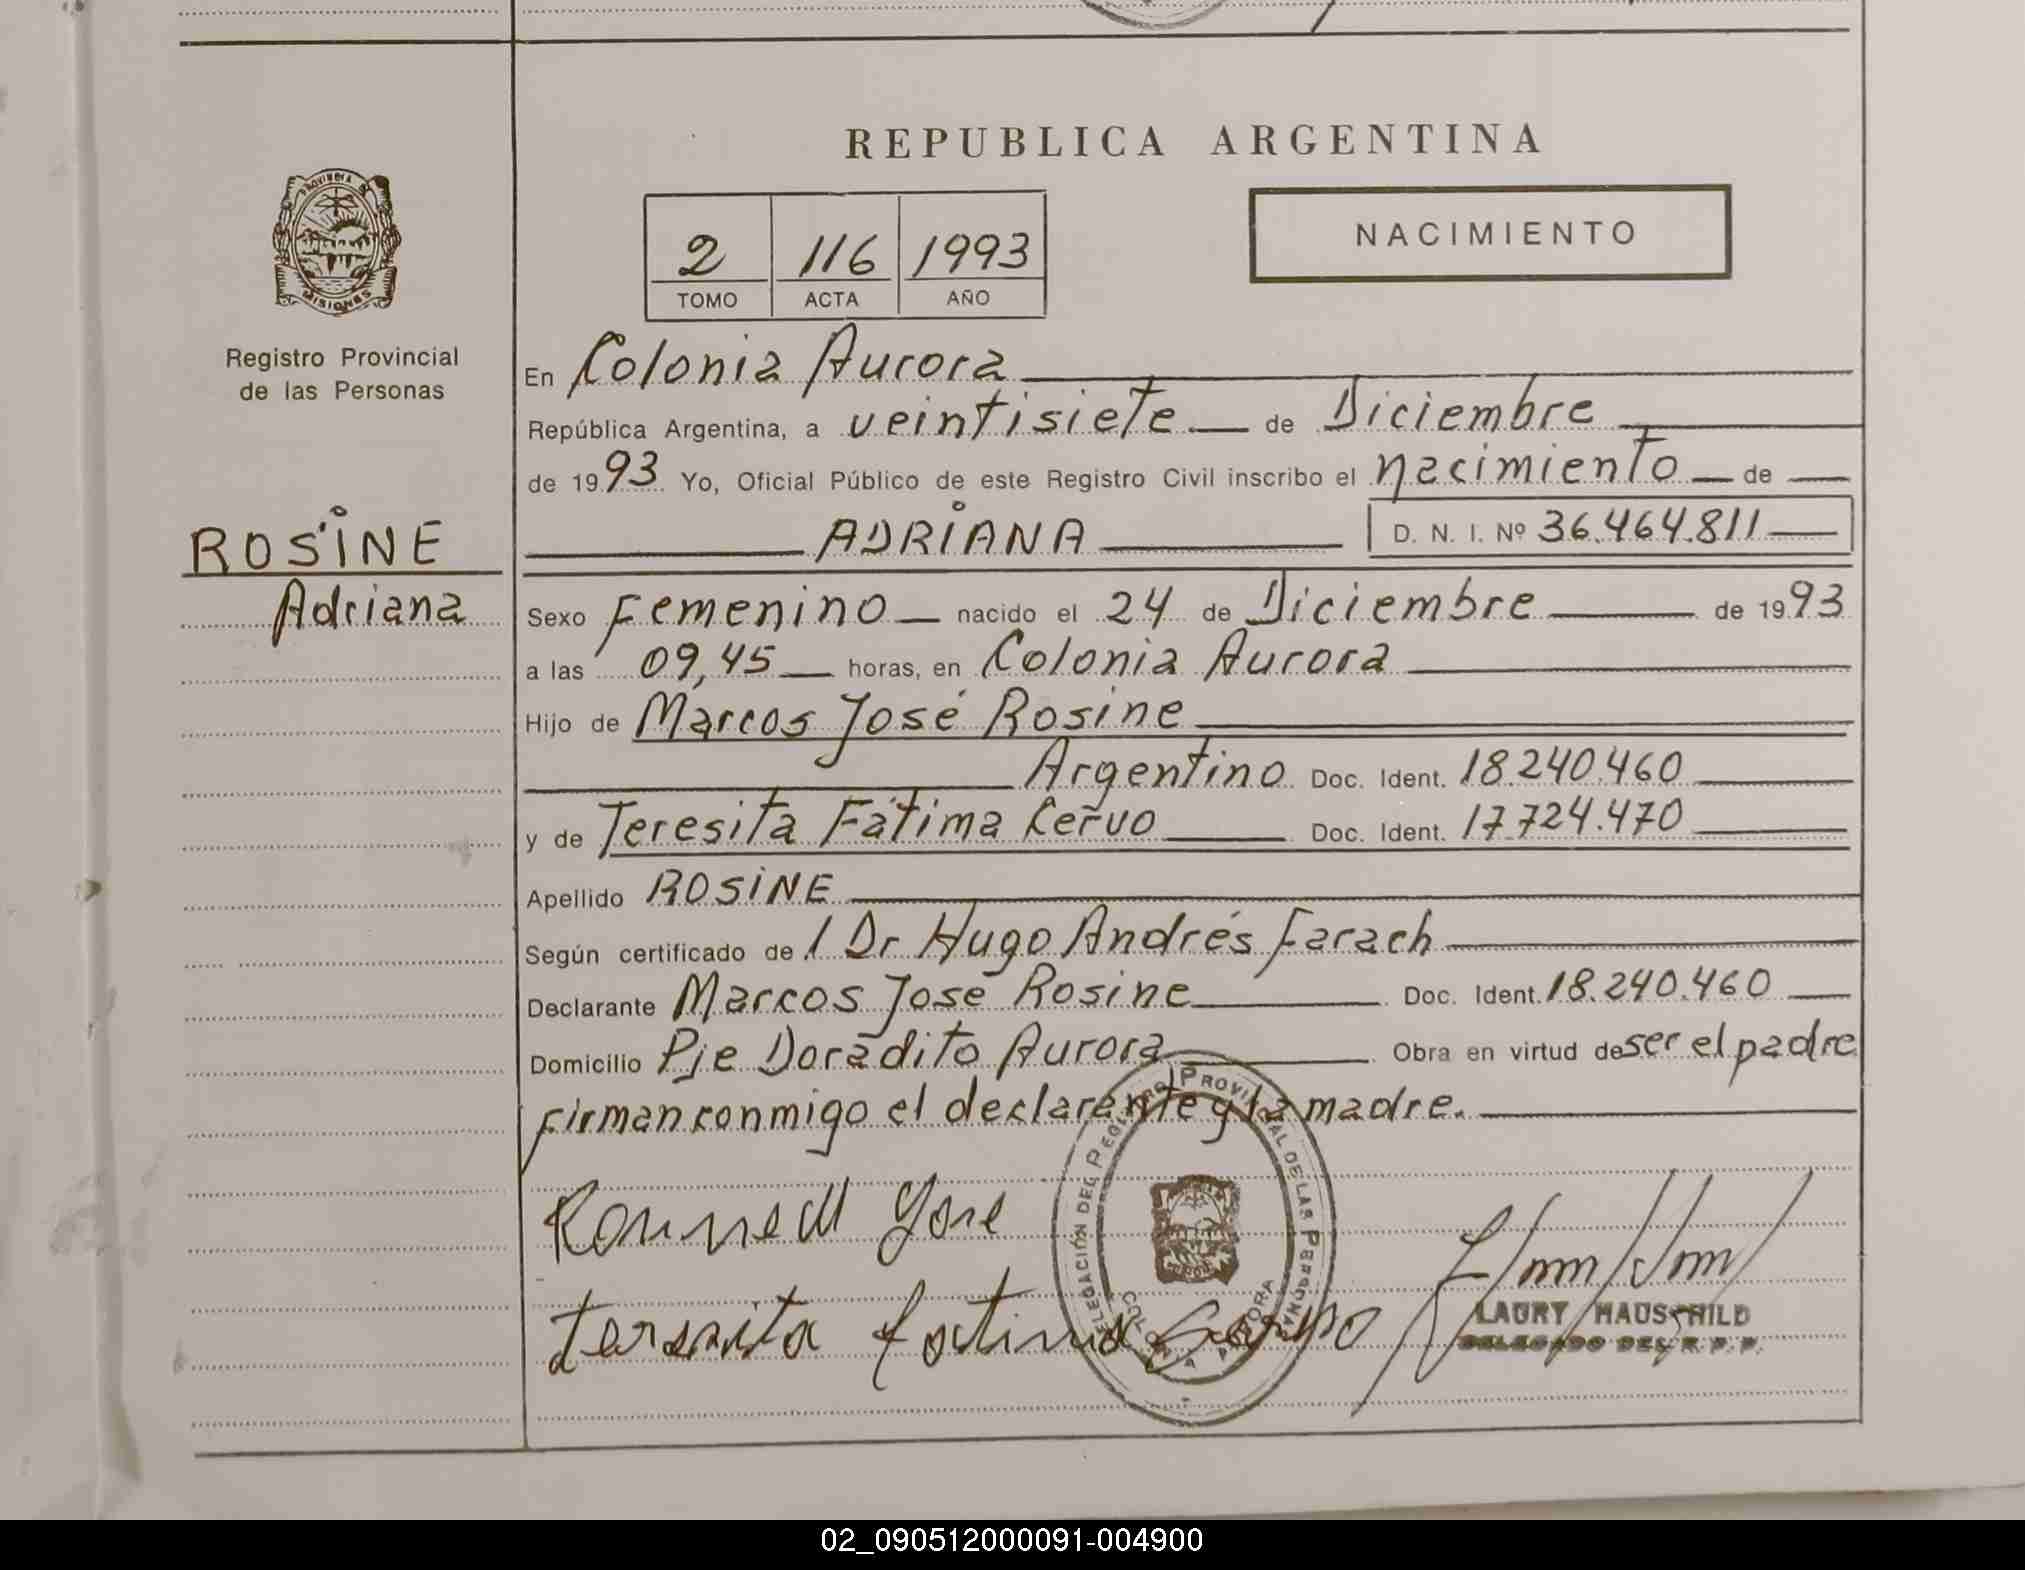 REPUBLICA ARGENTINA
NACIMIENTO
2 116 1993
TOMO ACTA AÑO
PROVINCIA DE
MISIONES
Registro Provincial
de las Personas
ROSINE
Adriana
En Colonia Aurora
República Argentina, a veintisiete de Diciembre
de 1993 Yo, Oficial Público de este Registro Civil inscribo el nacimiento de
ADRIANA D. N. I. Nº 36.464.811
Sexo Femenino nacido el 24 de Diciembre de 1993
a las 09,45 horas, en Colonia Aurora
Hijo de Marcos José Rosine
Argentino Doc. Ident. 18.240.460
y de Teresita Fátima Cervo Doc. Ident. 17.724.470
Apellido ROSINE
Según certificado de Dr Hugo Andrés Farach
Declarante Marcos José Rosine Doc. Ident. 18.240.460
Domicilio Pje Doradito Aurora Obra en virtud de ser el padre
firman conmigo el declarante y la madre.
DELEGACIÓN DEL REGISTRO PROVINCIAL DE LAS PERSONAS
COLONIA AURORA
Jose
Teresita Fatima
LAURY HAUSCHILD
DELEGADO DEL R.P.P.
02_090512000091-004900